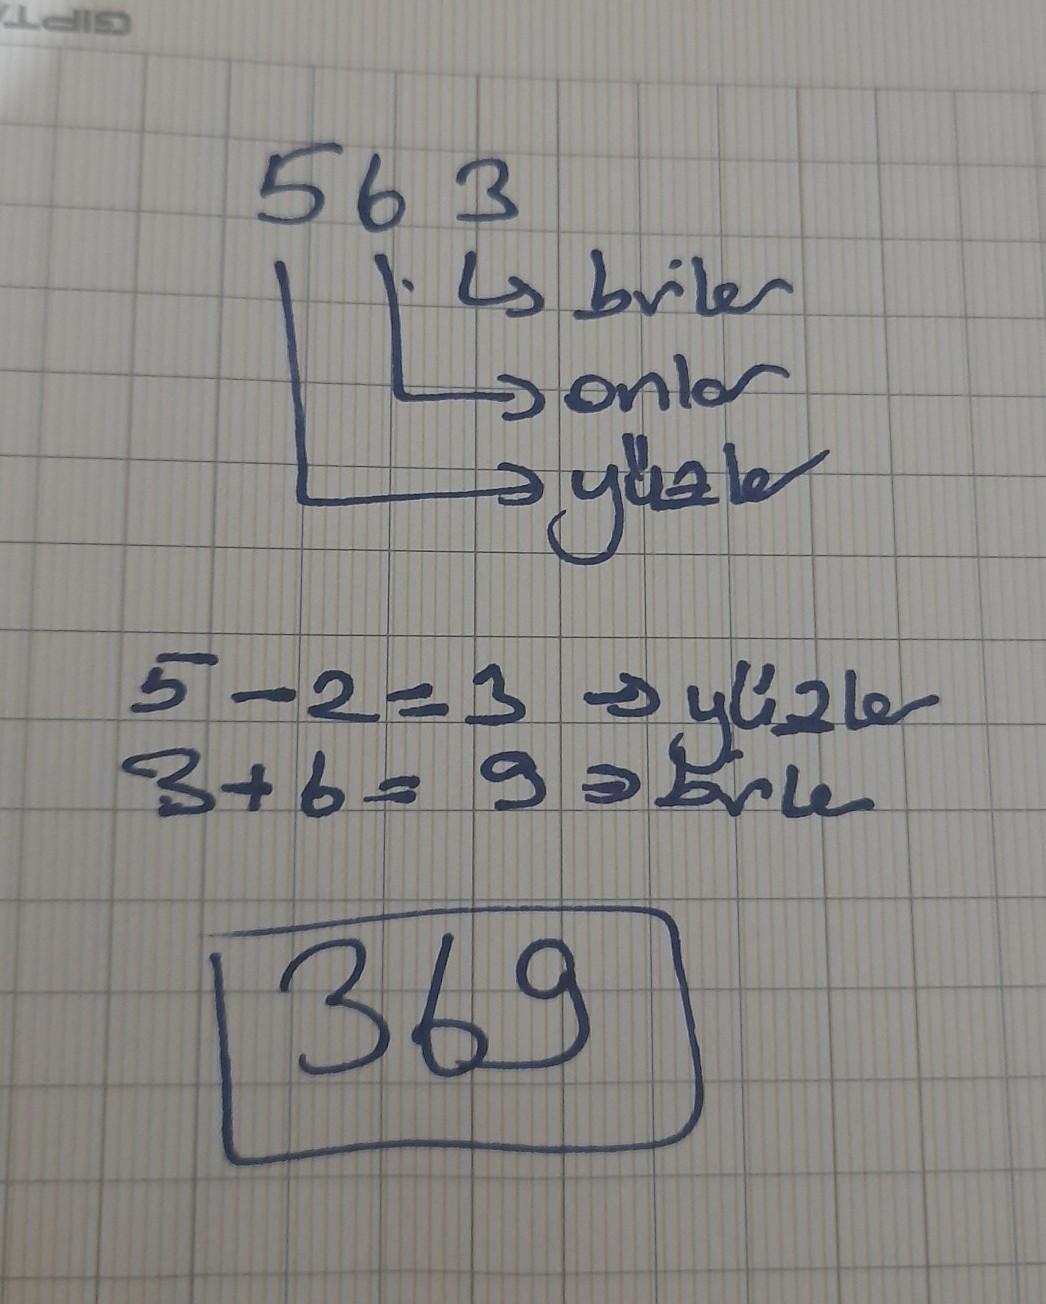 563
↳ briler
→ onlar
→ yüzler
5-2=3 → yüzler
3+6= 9 ⇒ brler
369